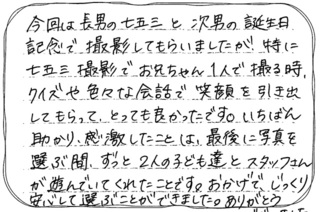 今回は長男の七五三と次男の誕生日
記念で、撮影してもらいましたが、特に
七五三撮影でお兄ちゃん1人で撮る時、
クイズや色々な会話で笑顔を引き出
してもらって、とっても良かったです。いちばん
助かり、感激したことは、最後に写真を
選ぶ間、ずっと2人の子ども達とスタッフさん
が遊んでいてくれたことです。おかげで、じっくり
安心して選ぶことができました。ありがとう